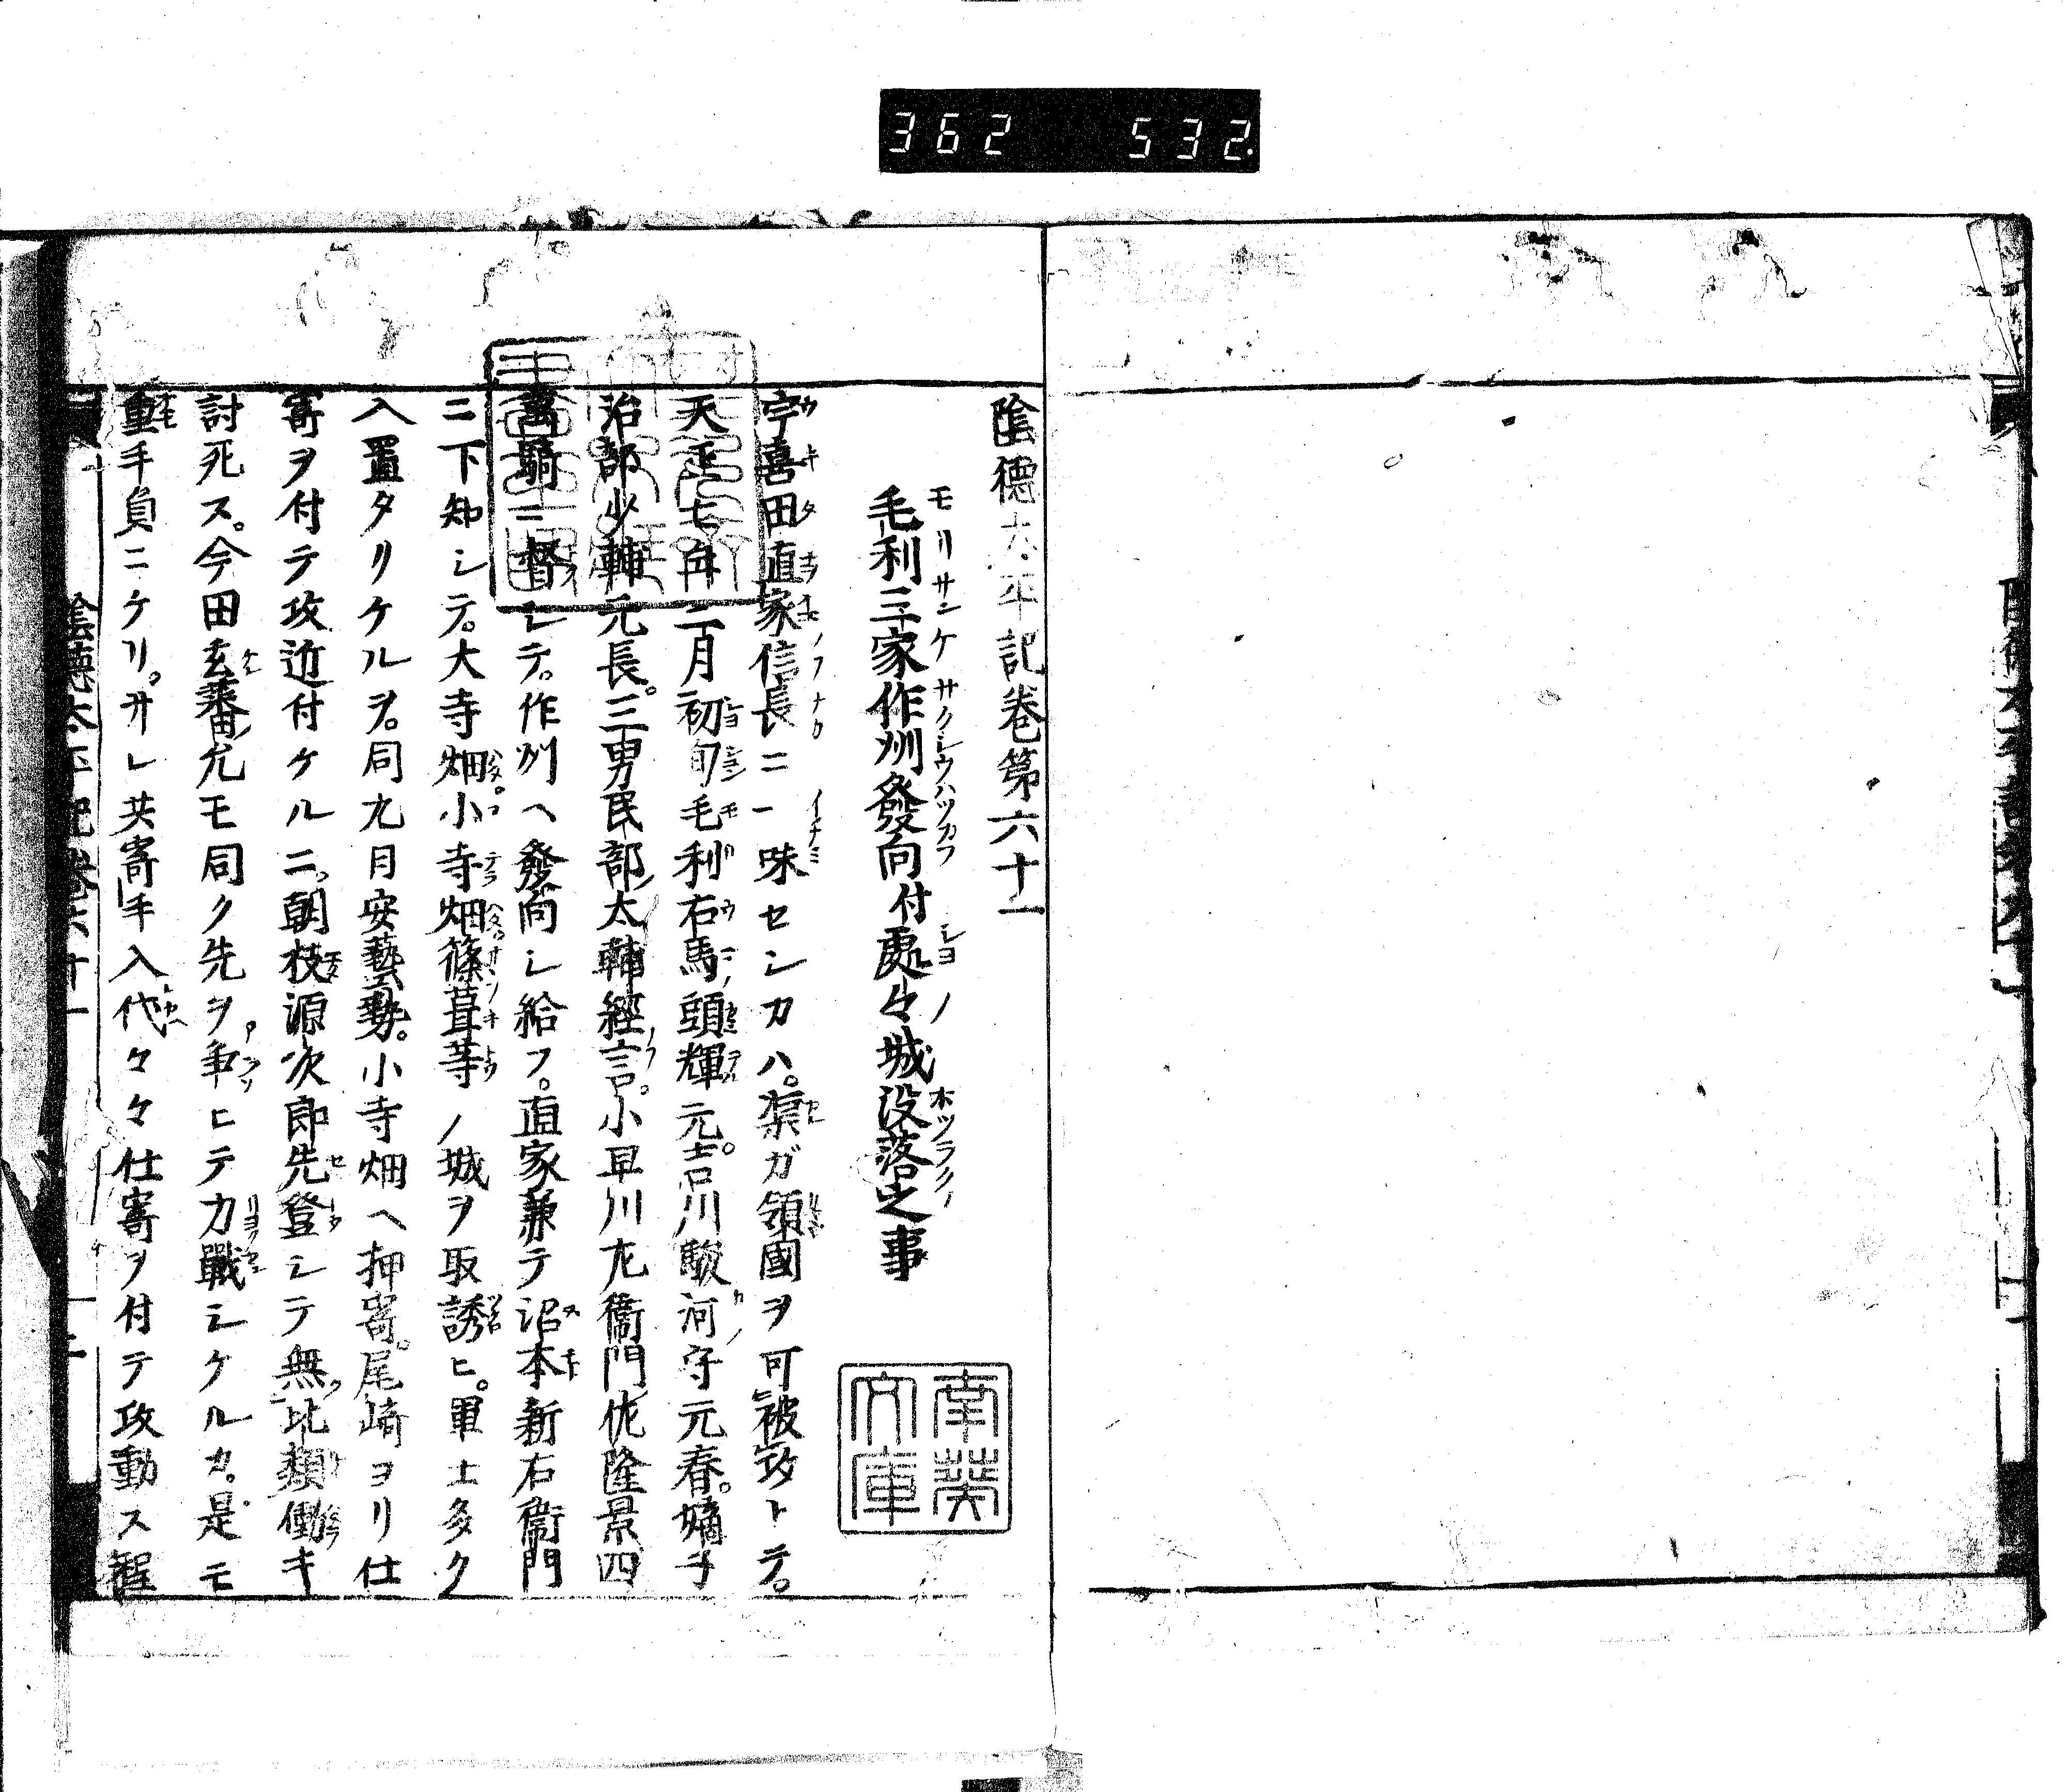 362 532.
陰徳太平記巻第六十一
毛利三家作州發向付處々城没落之事
モリサンケサクシウハツカフ シヨノ ホツラクノ
宇喜田直家信長ニ一味センカハ。渠ガ領國ヲ可被攻トテ。
天正七年二月初旬毛利右馬頭輝元。吉川駿河守元春。嫡子
治部少輔元長。三男民部太輔經言。小早川左衞門佐隆景四
萬騎ニ督シテ。作州ヘ發向シ給フ。直家兼テ沼本新右衞門
ニ下知シテ。大寺畑小寺畑篠葺等ノ城ヲ取誘ヒ。軍士多ク
入置タリケルヲ。同九月安藝勢。小寺畑ヘ押寄。尾崎ヨリ仕
寄ヲ付テ攻近付ケルニ。朝枝源次郎先登シテ無比類働キ
討死ス。今田玄蕃允モ同ク先ヲ争ヒテ力戰シケルカ。是モ
重手負ニケリ。サレ共寄手入代々々仕寄ヲ付テ攻動ス程
陰徳太平記巻六十一
南葵
文庫